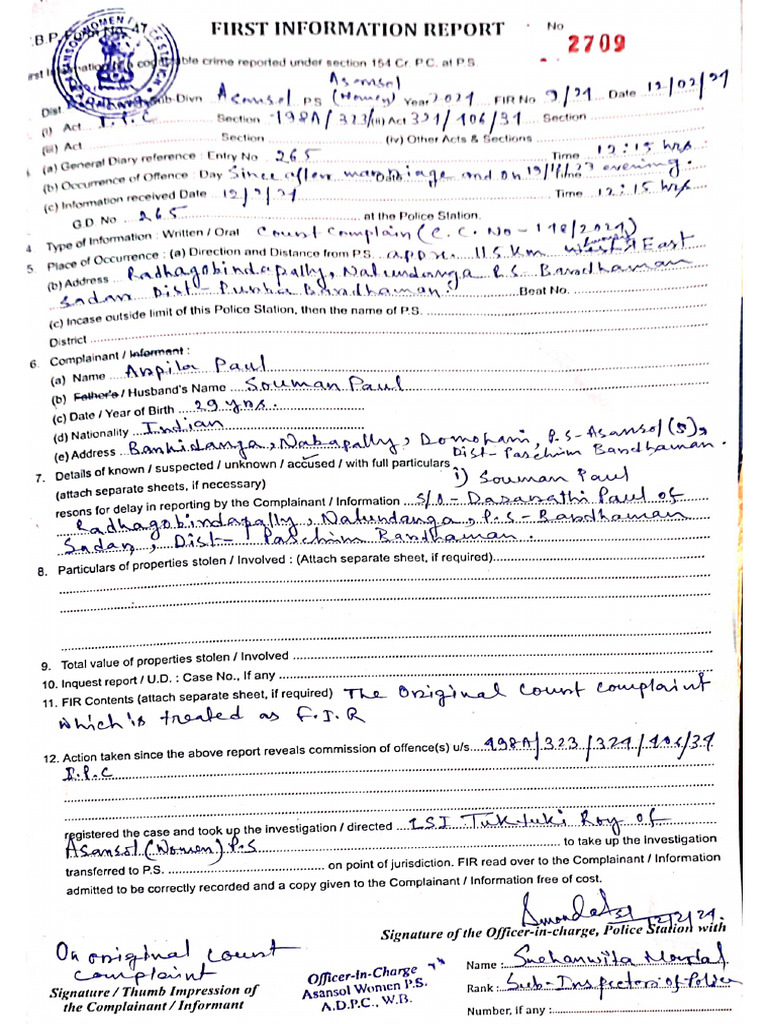 B.P. Form No. 47
FIRST INFORMATION REPORT
No
2709
ASANSOL WOMEN POLICE STATION
First Information of a cognizable crime reported under section 154 Cr. P.C. at P.S.
Asansol
Dist Sub-Divn Asansol PS (Women) Year 2021 FIR No 9/21 Date 12/02/21
(i) Act I.P.C Section 498A/323/(ii) Act 324/406/34 Section
(iii) Act Section (iv) Other Acts & Sections
(a) General Diary reference : Entry No 265 Time 12:15 hrs
(b) Occurrence of Offence : Day Since after marriage and on evening.
(c) Information received Date 12/2/21 Time 12:15 hrs
G.D No 265 at the Police Station.
4 Type of Information : Written / Oral Court Complain (C.C. No - 118/2021)
5. Place of Occurrence : (a) Direction and Distance from P.S. apox. 115 Km East
(b) Address Radhagobindapally, Natundanga P.S. Bardhaman
Sadar Dist- Purba Bardhaman. Beat No.
(c) Incase outside limit of this Police Station, then the name of P.S.
District
6. Complainant / Informant :
(a) Name Arpita Paul
(b) Father's / Husband's Name Souman Paul
(c) Date / Year of Birth 29 yrs.
(d) Nationality Indian
(e) Address Banhidanga, Nabapally, Domohani, P.S-Asansol (S),
Dist- Paschim Bardhaman.
7. Details of known / suspected / unknown / accused / with full particulars i) Souman Paul
(attach separate sheets, if necessary)
resons for delay in reporting by the Complainant / Information S/O- Dasarathi Paul of
Radhagobindapally, Natundanga, P.S- Bardhaman
Sadar, Dist- Paschim Bardhaman.
8. Particulars of properties stolen / Involved : (Attach separate sheet, if required)
9. Total value of properties stolen / Involved
10. Inquest report / U.D. : Case No., If any
11. FIR Contents (attach separate sheet, if required) The Original Court Complaint
which is treated as F.I.R
12. Action taken since the above report reveals commission of offence(s) u/s. 498A/323/324/406/34
I.P.C
registered the case and took up the investigation / directed LSI Tuktuki Roy of
Asansol (Women) P.S to take up the Investigation
transferred to P.S. on point of jurisdiction. FIR read over to the Complainant / Information
admitted to be correctly recorded and a copy given to the Complainant / Information free of cost.
12/2/21.
Signature of the Officer-in-charge, Police Station with
On original Court
Complaint
Signature / Thumb Impression of
the Complainant / Informant
Officer-in-Charge
Asansol Women P.S.
A.D.P.C., W.B.
Name : Snehanwita Mondal
Rank : Sub-Inspector of Police
Number, if any :